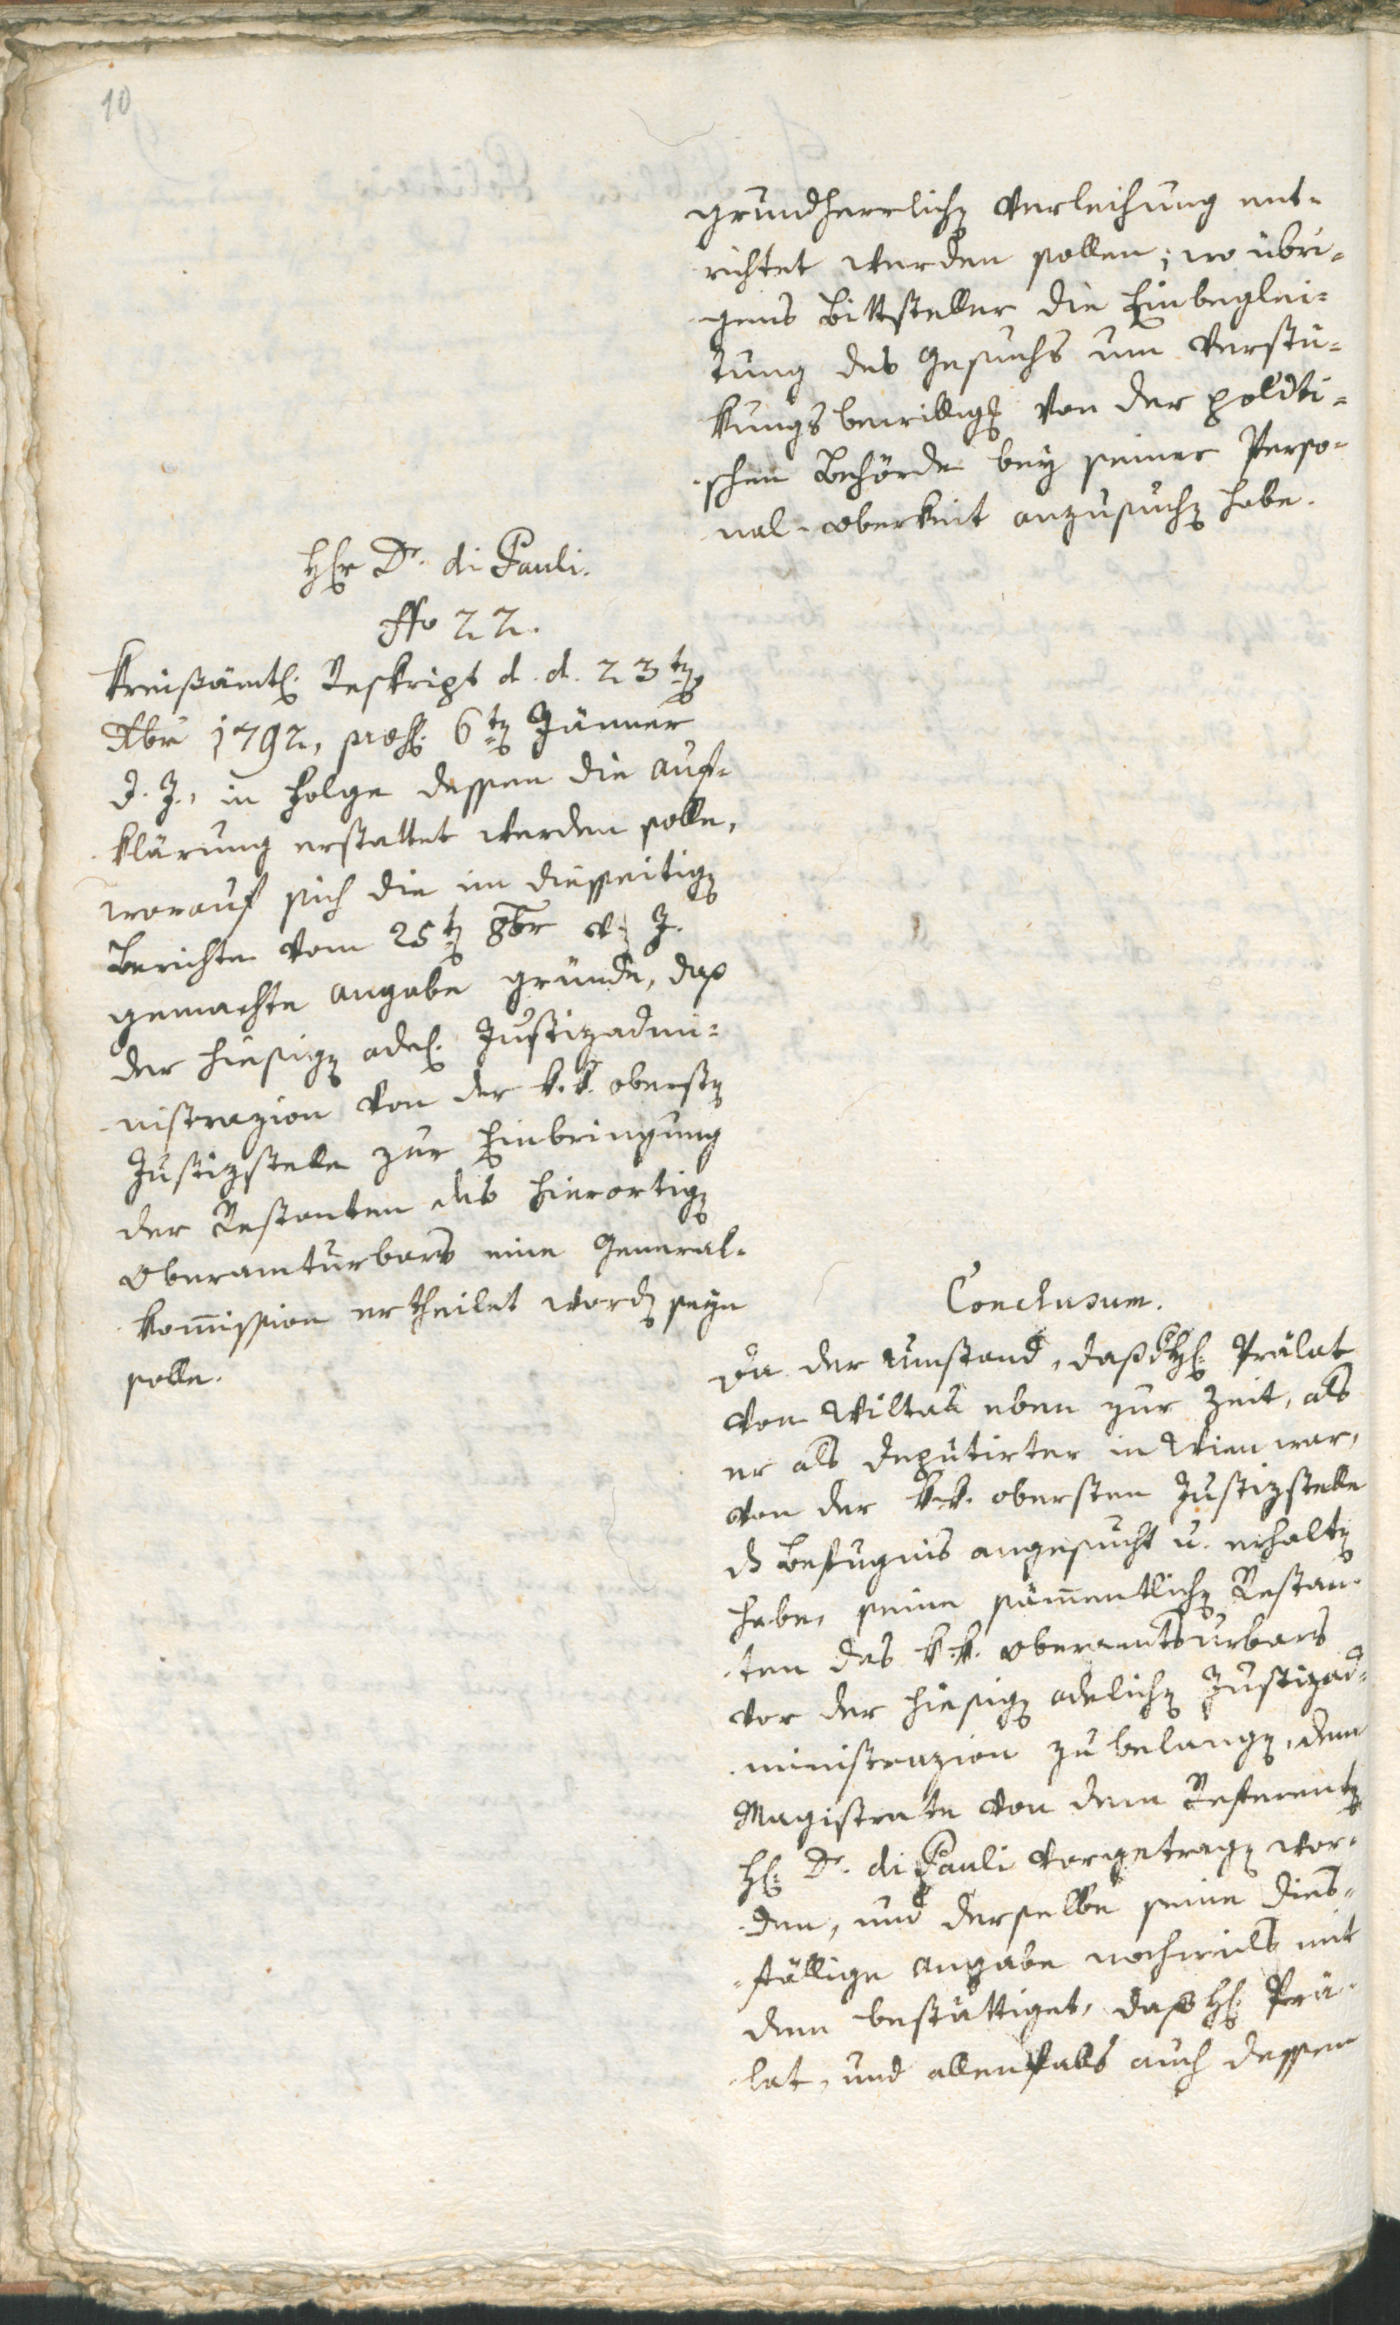 10
grundherrlichen Verleihung ent-
richtet werden sollen; wo übri-
gens Bittsteller die Einbeglei-
tung des Gesuchs um Verstü-
kungsbewillig. von der politi-
schen Behörde bey seiner Perso-
nal-Oberkeit anzusuchen habe.
Hr Dr. di Pauli.
No 22.
Kreisämtl. Reskript d. d. 23ten
Xbr 1792, präs. 6ten Jänner
d. J., in Folge dessen die Auf-
klärung erstattet werden solle,
worauf sich die im diesseitigen
Berichte vom 25ten 8br v. J.
gemachte Angabe gründe, daß
der hiesigen adel. Justizadmi-
nistrazion von der k. k. obersten
Justizstelle zur Einbringung
der Restanten des hierortigen
Oberamturbars eine General-
kommission ertheilet worden seyn
solle.
Conclusum.
Da der Umstand, daß H. Prälat
von Wiltau eben zur Zeit, als
er als Deputirter in Wien war,
von der k. k. obersten Justizstelle
die Befugnis angesucht u. erhalten
habe, seine sämmentlichen Restan-
ten des k. k. Oberamtsurbars
vor der hiesigen adelichen Justizad-
ministrazion zu belangen, dem
Magistrate von dem Referenten
H. Dr. di Pauli vorgetragen wor-
den, und derselbe seine dies-
fällige Angabe nochmals mit
dem bestättiget, daß H. Prä-
lat, und allenfalls auch dessen